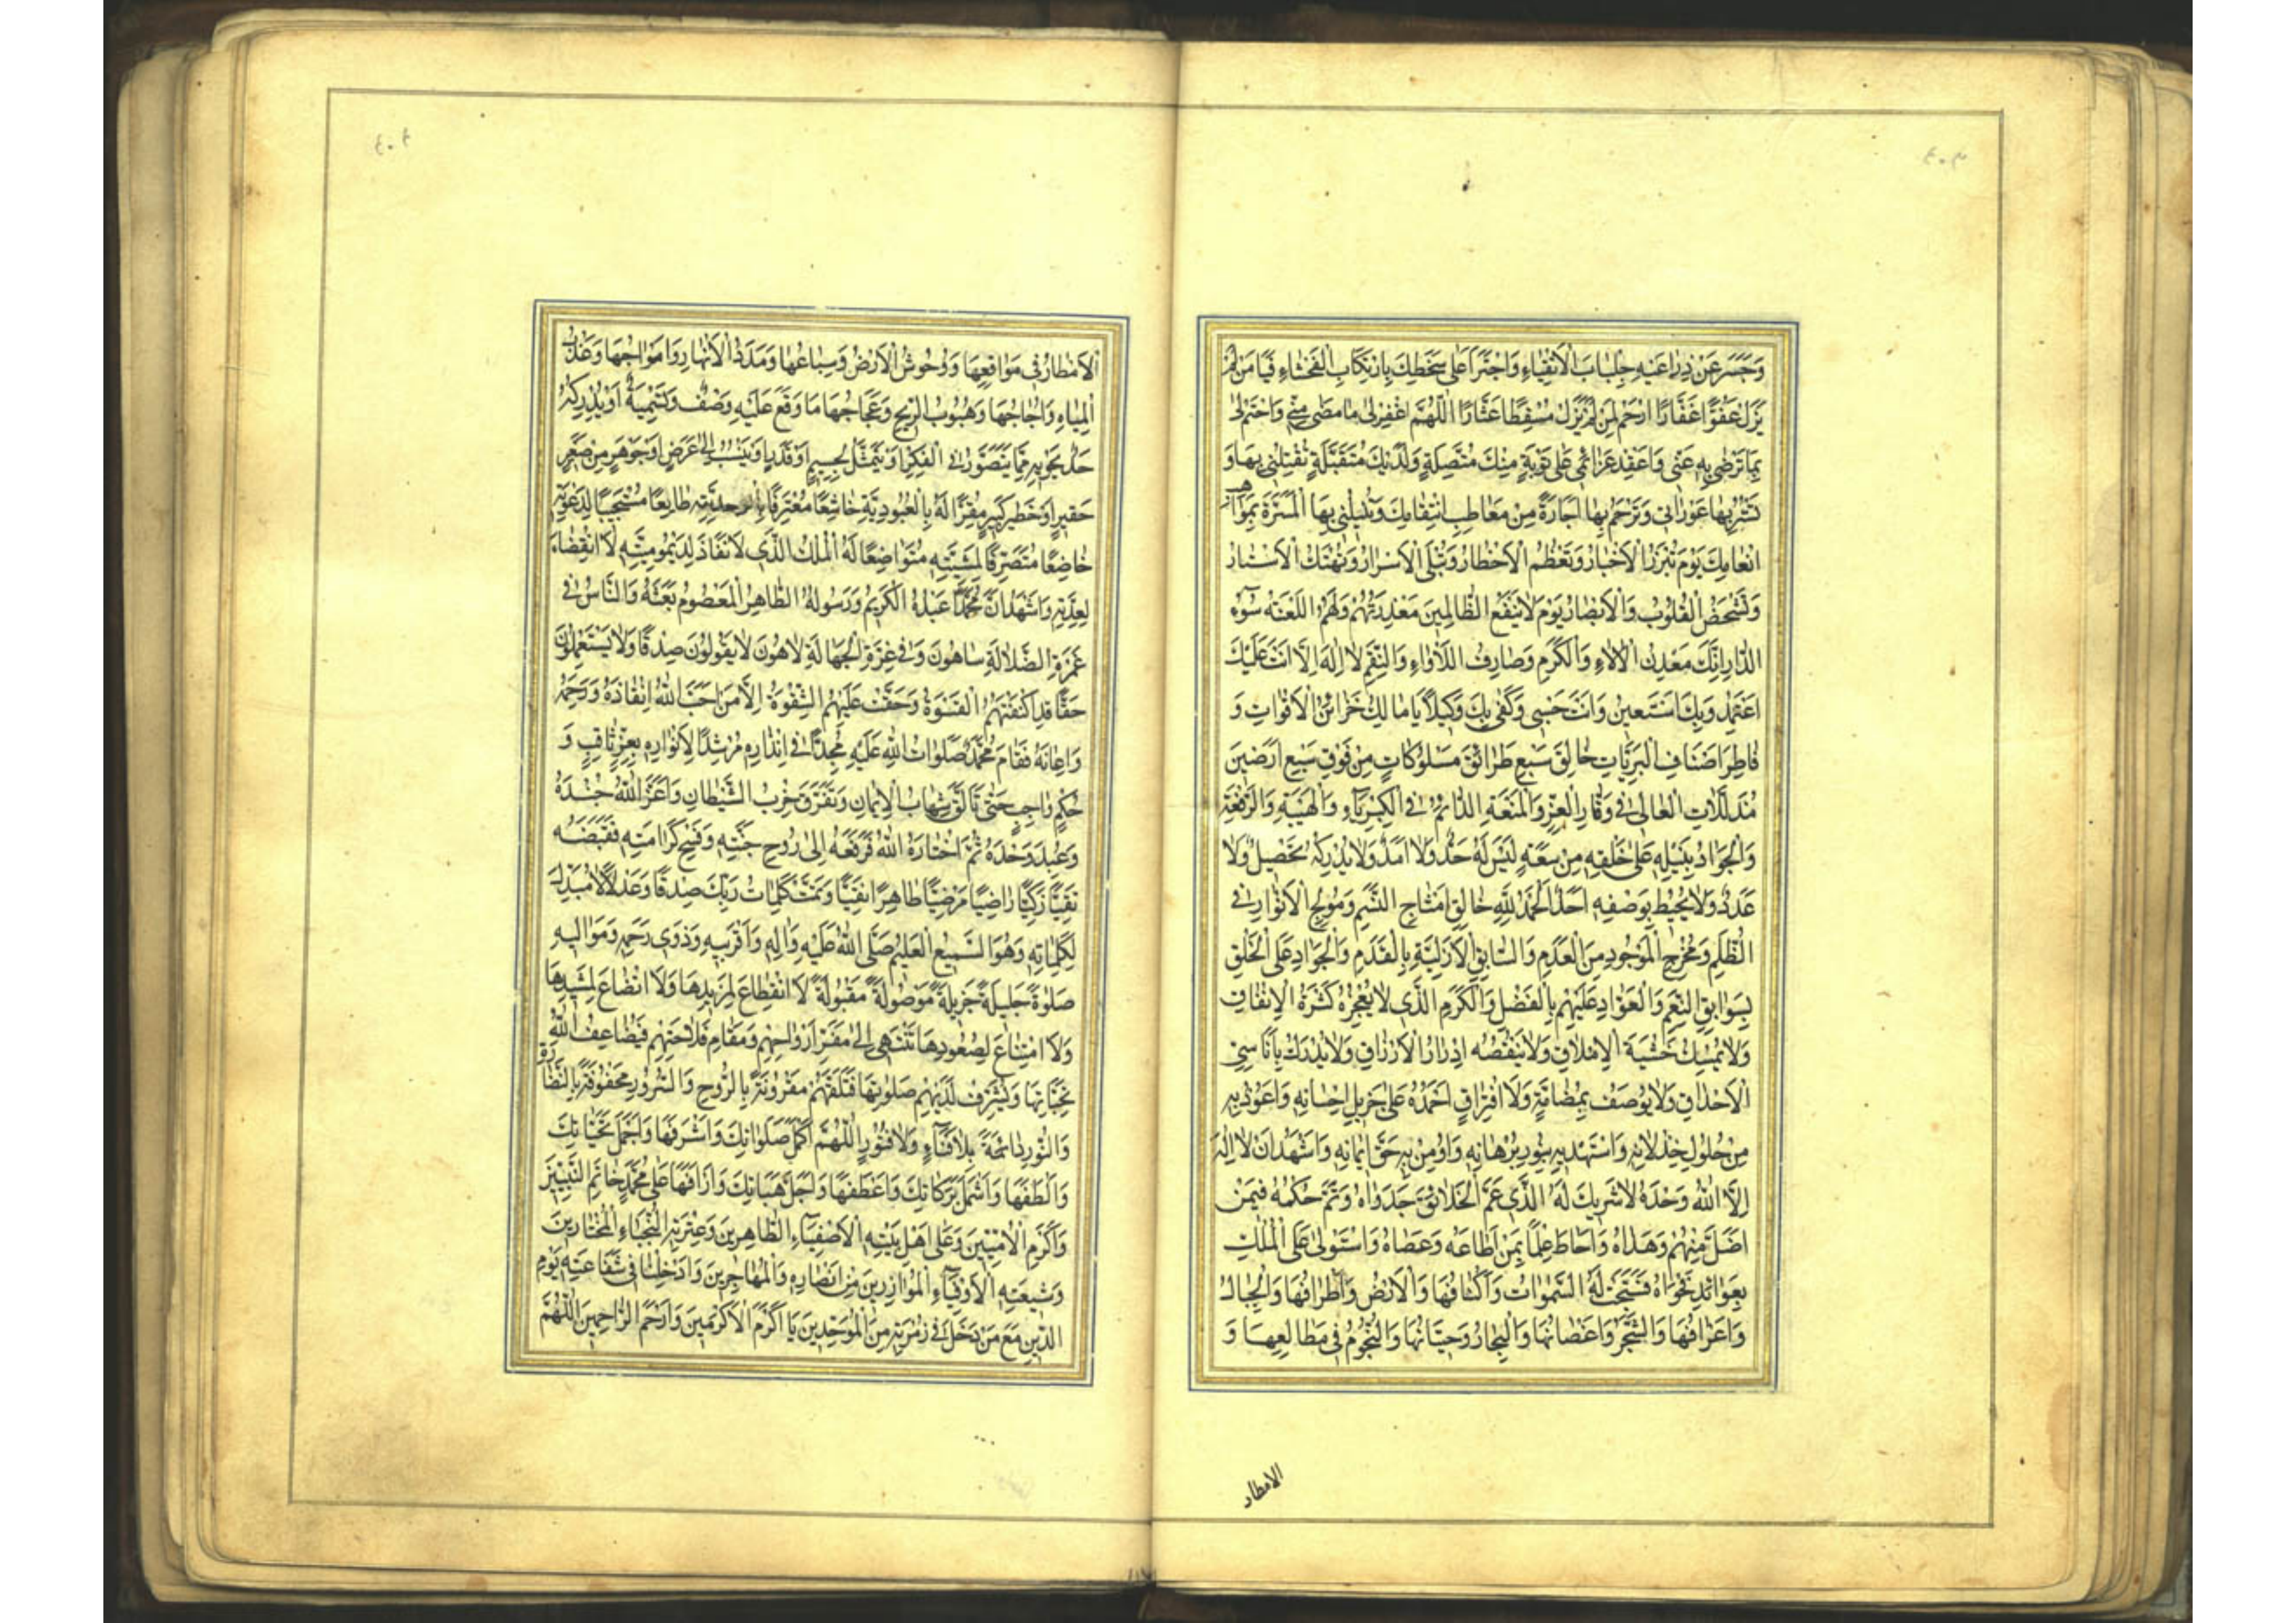 ٤٠٣
وَحَسَرَ عَنْ ذِرٰاعَيْهِ جِلْبٰابَ الْاَتْقِيٰاءِ وَاجْتَرَاَ عَلىٰ سَخَطِكَ بِارْتِكٰابِ الْفَحْشٰاءِ فَيٰا مَنْ لَمْ
يَزَلْ عَفُوًّا غَفّٰارًا ارْحَمْ مَنْ لَمْ يَزَلْ مُسْقِطًا عَثّٰارًا اَللّٰهُمَّ اغْفِرْ لىٰ مٰا مَضىٰ مِنّىٖ وَاخْتِمْ لىٰ
بِمٰا تَرْضىٰ بِهٖ عَنّىٖ وَاعْقِدْ عَزٰائِمىٖ عَلىٰ تَوْبَةٍ مِنْكَ مُتَّصِلَةٍ وَلَدَيْكَ مُتَقَبَّلَةٍ تُقيٖلُنىٖ بِهٰا وَ
تَسْتُرُ بِهٰا عَوْرٰاتىٖ وَتَرْحَمُ بِهٰا اِجٰارَةً مِنْ مَعٰاطِبِ انْتِقٰامِكَ وَتُنيٖلُنىٖ بِهَا الْمَسَرَّةَ بِمَوٰاهِبِ
اِنْعٰامِكَ يَوْمَ تَبْرُزُ الْاَخْبٰارُ وَتَعْظُمُ الْاَخْطٰارُ وَتُبْلَى الْاَسْرٰارُ وَتُهْتَكُ الْاَسْتٰارُ
وَتَشْخَصُ الْقُلُوبُ وَالْاَبْصٰارُ يَوْمَ لٰا يَنْفَعُ الظّٰالِميٖنَ مَعْذِرَتُهُمْ وَلَهُمُ اللَّعْنَةُ وَلَهُمْ سُوٓءُ
الدّٰارِ اِنَّكَ مَعْدِنُ الْاٰلٰاءِ وَالْكَرَمِ وَصٰارِفُ اللَّأْوٰاءِ وَالنِّقَمِ لٰا اِلٰهَ اِلّٰا اَنْتَ عَلَيْكَ
اَعْتَمِدُ وَبِكَ اَسْتَعيٖنُ وَاَنْتَ حَسْبىٖ وَكَفىٰ بِكَ وَكيٖلًا يٰا مٰالِكَ خَزٰائِنِ الْاَقْوٰاتِ وَ
فٰاطِرَ اَصْنٰافِ الْبَرِيّٰاتِ خٰالِقَ سَبْعِ طَرٰائِقَ مَسْلُوكٰاتٍ مِنْ فَوْقِ سَبْعِ اَرَضيٖنَ
مُذَلَّلٰاتٍ الْعٰالىٖ فىٖ وَقٰارِ الْعِزِّ وَالْمَنَعَةِ الدّٰائِمُ فِى الْكِبْرِيٰاءِ وَالْهَيْبَةِ وَالرِّفْعَةِ
وَالْجَوٰادُ بِنَيْلِهٖ عَلىٰ خَلْقِهٖ مِنْ سَعَةٍ لَيْسَ لَهُ حَدٌّ وَلٰا اَمَدٌ وَلٰا يُدْرِكُهُ تَحْصيٖلٌ وَلٰا
عَدَدٌ وَلٰا يُحيٖطُ بِوَصْفِهٖ اَحَدٌ اَلْحَمْدُ لِلّٰهِ خٰالِقِ اَمْشٰاجِ النَّسَمِ وَمُولِجِ الْاَنْوٰارِ فىٖ
الظُّلَمِ وَمُخْرِجِ الْمَوْجُودِ مِنَ الْعَدَمِ وَالسّٰابِقِ الْاَزَلِيَّةِ بِالْقِدَمِ وَالْجَوٰادِ عَلَى الْخَلْقِ
بِسَوٰابِقِ النِّعَمِ وَالْعَوّٰادِ عَلَيْهِمْ بِالْفَضْلِ وَالْكَرَمِ الَّذىٖ لٰا يُعْجِزُهُ كَثْرَةُ الْاِنْفٰاقِ
وَلٰا يُمْسِكُ خَشْيَةَ الْاِمْلٰاقِ وَلٰا يَنْقُصُهُ اِدْرٰارُ الْاَرْزٰاقِ وَلٰا يُدْرَكُ بِاَنٰاسِىِّ
الْاَحْدٰاقِ وَلٰا يُوصَفُ بِمُضٰامَّةٍ وَلَا افْتِرٰاقٍ اَحْمَدُهُ عَلىٰ جَزيٖلِ اِحْسٰانِهٖ وَاَعُوذُ بِهٖ
مِنْ حُلُولِ خِذْلٰانِهٖ وَاَسْتَهْديٖهِ بِنُورِ بُرْهٰانِهٖ وَاُومِنُ بِهٖ حَقَّ ايٖمٰانِهٖ وَاَشْهَدُ اَنْ لٰا اِلٰهَ
اِلَّا اللّٰهُ وَحْدَهُ لٰا شَريٖكَ لَهُ الَّذىٖ عَمَّ الْخَلٰائِقَ جَدْوٰاهُ وَتَمَّ حُكْمُهُ فيٖمَنْ
اَضَلَّ مِنْهُمْ وَهَدٰاهُ وَاَحٰاطَ عِلْمًا بِمَنْ اَطٰاعَهُ وَعَصٰاهُ وَاسْتَوْلىٰ عَلَى الْمُلْكِ
بِعَوٰائِدِ فَسَبَّحَتْ لَهُ السَّمٰوٰاتُ وَاَكْنٰافُهٰا وَالْاَرْضُ وَاَطْرٰافُهٰا وَالْجِبٰالُ
وَاَعْرٰافُهٰا وَالشَّجَرُ وَاَغْصٰانُهٰا وَالْبِحٰارُ وَحيٖتٰانُهٰا وَالنُّجُومُ فىٖ مَطٰالِعِهٰا وَ
الامطار
٤٠٤
الْاَمْطٰارُ فىٖ مَوٰاقِعِهٰا وَوُحُوشُ الْاَرْضِ وَسِبٰاعُهٰا وَمَدَدُ الْاَنْهٰارِ وَاَمْوٰاجُهٰا وَعَذْبُ
الْمِيٰاهِ وَاُجٰاجُهٰا وَهُبُوبُ الرّيٖحِ وَعَجٰاجُهٰا مٰا وَقَعَ عَلَيْهِ وَصْفٌ وَتَسْمِيَةٌ اَوْ يُدْرِكُهُ
حَدٌّ يَحْويٖهِ مِمّٰا يُتَصَوَّرُ فِى الْفِكْرِ اَوْ يُتَمَثَّلُ بِجِسْمٍ اَوْ قَدْرٍ اَوْ يُنْسَبُ اِلىٰ عَرَضٍ اَوْ جَوْهَرٍ مِنْ صَغيٖرٍ
حَقيٖرٍ اَوْ خَطيٖرٍ كَبيٖرٍ مُقِرًّا لَهُ بِالْعُبُودِيَّةِ خٰاشِعًا مُعْتَرِفًا بِالْوَحْدٰانِيَّةِ طٰايِعًا مُسْتَجيٖبًا لِدَعْوَتِهٖ
خٰاضِعًا مُتَصَرِّفًا لِمَشِيَّتِهٖ مُتَوٰاضِعًا لَهُ الْمُلْكُ الَّذىٖ لٰا نَفٰاذَ لِدَيْمُومِيَّتِهٖ لَا انْقِضٰاءَ
لِعِدَّتِهٖ وَاَشْهَدُ اَنَّ مُحَمَّدًا عَبْدُهُ الْكَريٖمُ وَرَسُولُهُ الطّٰاهِرُ الْمَعْصُومُ بَعَثَهُ وَالنّٰاسُ فىٖ
غَمْرَةِ الضَّلٰالَةِ سٰاهُونَ وَفىٖ غِرَّةِ الْجَهٰالَةِ لٰاهُونَ لٰا يَقُولُونَ صِدْقًا وَلٰا يَسْتَعْمِلُونَ
حَقًّا قَدِ اكْتَنَفَتْهُمُ الْقَسْوَةُ وَحَقَّتْ عَلَيْهِمُ الشِّقْوَةُ اِلّٰا مَنْ اَحَبَّ اللّٰهُ اِنْقٰاذَهُ وَرَحِمَهُ
وَاَعٰانَهُ فَقٰامَ مُحَمَّدٌ صَلَوٰاتُ اللّٰهِ عَلَيْهِ مُجِدًّا فىٖ اِنْذٰارِهٖ مُرْشِدًا لِاَنْوٰارِهٖ بِعِزٍّ ثٰاقِبٍ وَ
حُكْمٍ وٰاجِبٍ حَتّىٰ تَاَلَّقَ شِهٰابُ الْاِيمٰانِ وَتَفَرَّقَ حِزْبُ الشَّيْطٰانِ وَاَعَزَّ اللّٰهُ جُنْدَهُ
وَعُبِدَ وَحْدَهُ ثُمَّ اخْتٰارَهُ اللّٰهُ فَرَفَعَهُ اِلىٰ رَوْحِ جَنَّتِهٖ وَفَسيٖحِ كَرٰامَتِهٖ فَقَبَضَهُ
تَقِيًّا زَكِيًّا رٰاضِيًا مَرْضِيًّا طٰاهِرًا نَقِيًّا وَتَمَّتْ كَلِمٰاتُ رَبِّكَ صِدْقًا وَعَدْلًا لٰا مُبَدِّلَ
لِكَلِمٰاتِهٖ وَهُوَ السَّميٖعُ الْعَليٖمُ صَلَّى اللّٰهُ عَلَيْهِ وَاٰلِهٖ وَاَقْرَبيٖهِ وَذَوىٖ رَحِمِهٖ وَمَوٰاليٖهِ
صَلٰوةً جَليٖلَةً جَزيٖلَةً مَوْصُولَةً مَقْبُولَةً لَا انْقِطٰاعَ لِمَزيٖدِهٰا وَلَا اتِّضٰاعَ لِمَشيٖدِهٰا
وَلَا امْتِنٰاعَ لِصُعُودِهٰا تَنْتَهىٖ اِلىٰ مَقَرِّ اَرْوٰاحِهِمْ وَمَقٰامِ فَلٰاحِهِمْ فَيُضٰاعِفُ اللّٰهُ
تَحِيّٰاتِهٰا وَيُشَرِّفُ لَدَيْهِمْ صَلَوٰاتِهٰا فَتَلَقّٰهُمْ مَقْرُونَةً بِالرَّوْحِ وَالسُّرُورِ مَحْفُوفَةً بِالنَّضٰارَةِ
وَالنُّورِ دٰائِمَةً بِلٰا فَنٰاءٍ وَلٰا فُتُورٍ اَللّٰهُمَّ اَكْمَلَ صَلَوٰاتِكَ وَاَشْرَفَهٰا وَاَجْمَلَ تَحِيّٰاتِكَ
وَاَلْطَفَهٰا وَاَشْمَلَ بَرَكٰاتِكَ وَاَعْطَفَهٰا وَاَجَلَّ هِبٰاتِكَ وَاَرْاَفَهٰا عَلىٰ مُحَمَّدٍ خٰاتَمِ النَّبِيّيٖنَ
وَاَكْرَمِ الْاُمِّيّيٖنَ وَعَلىٰ اَهْلِ بَيْتِهِ الْاَصْفِيٰاءِ الطّٰاهِريٖنَ وَعِتْرَتِهِ النُّجَبٰاءِ الْمُخْتٰاريٖنَ
وَشيٖعَتِهِ الْاَوْفِيٰاءِ الْمُوٰازِريٖنَ مِنْ اَنْصٰارِهٖ وَالْمُهٰاجِريٖنَ وَاَدْخِلْنٰا فىٖ شَفٰاعَتِهٖ يَوْمَ
الدّيٖنِ مَعَ مَنْ دَخَلَ فىٖ زُمْرَتِهٖ مِنَ الْمُوَحِّديٖنَ يٰا اَكْرَمَ الْاَكْرَميٖنَ وَاَرْحَمَ الرّٰاحِميٖنَ اَللّٰهُمَّ